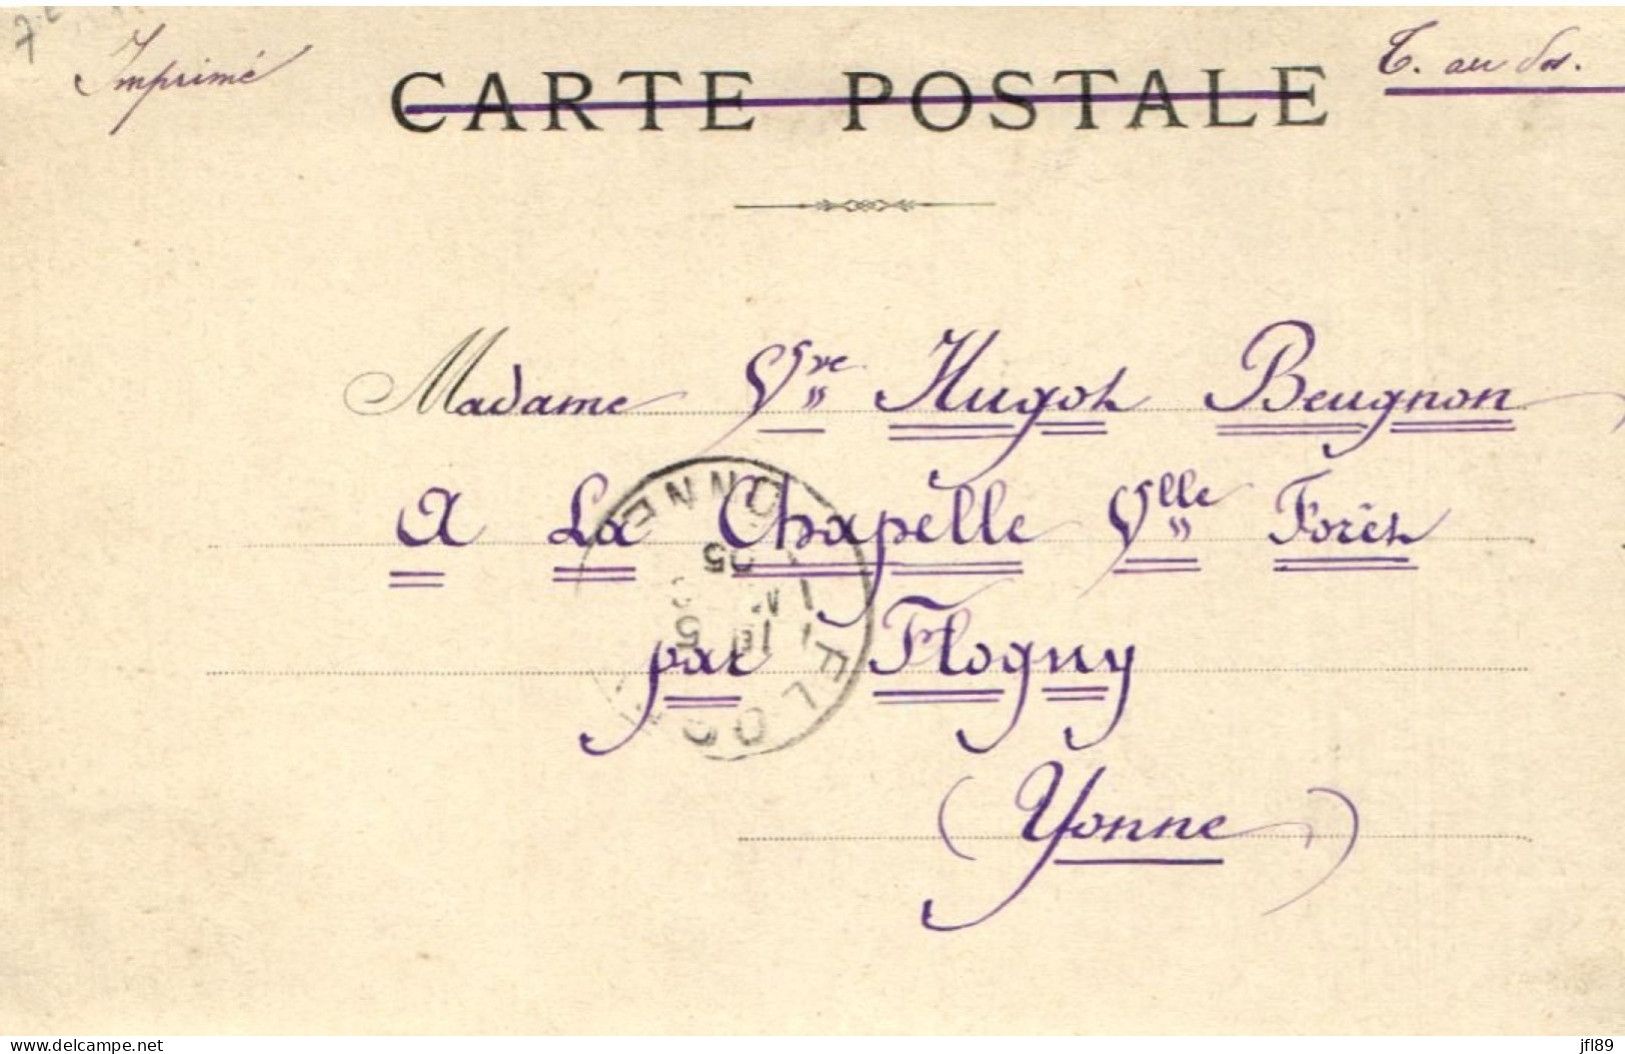 Imprimé
T. au dos.
CARTE POSTALE
Madame Vve Hugot Beugnon
A La Chapelle Vlle Forêt
par Flogny
(Yonne)
YONNE
05
FLOGNY
https://www.delcampe.net
jfl89